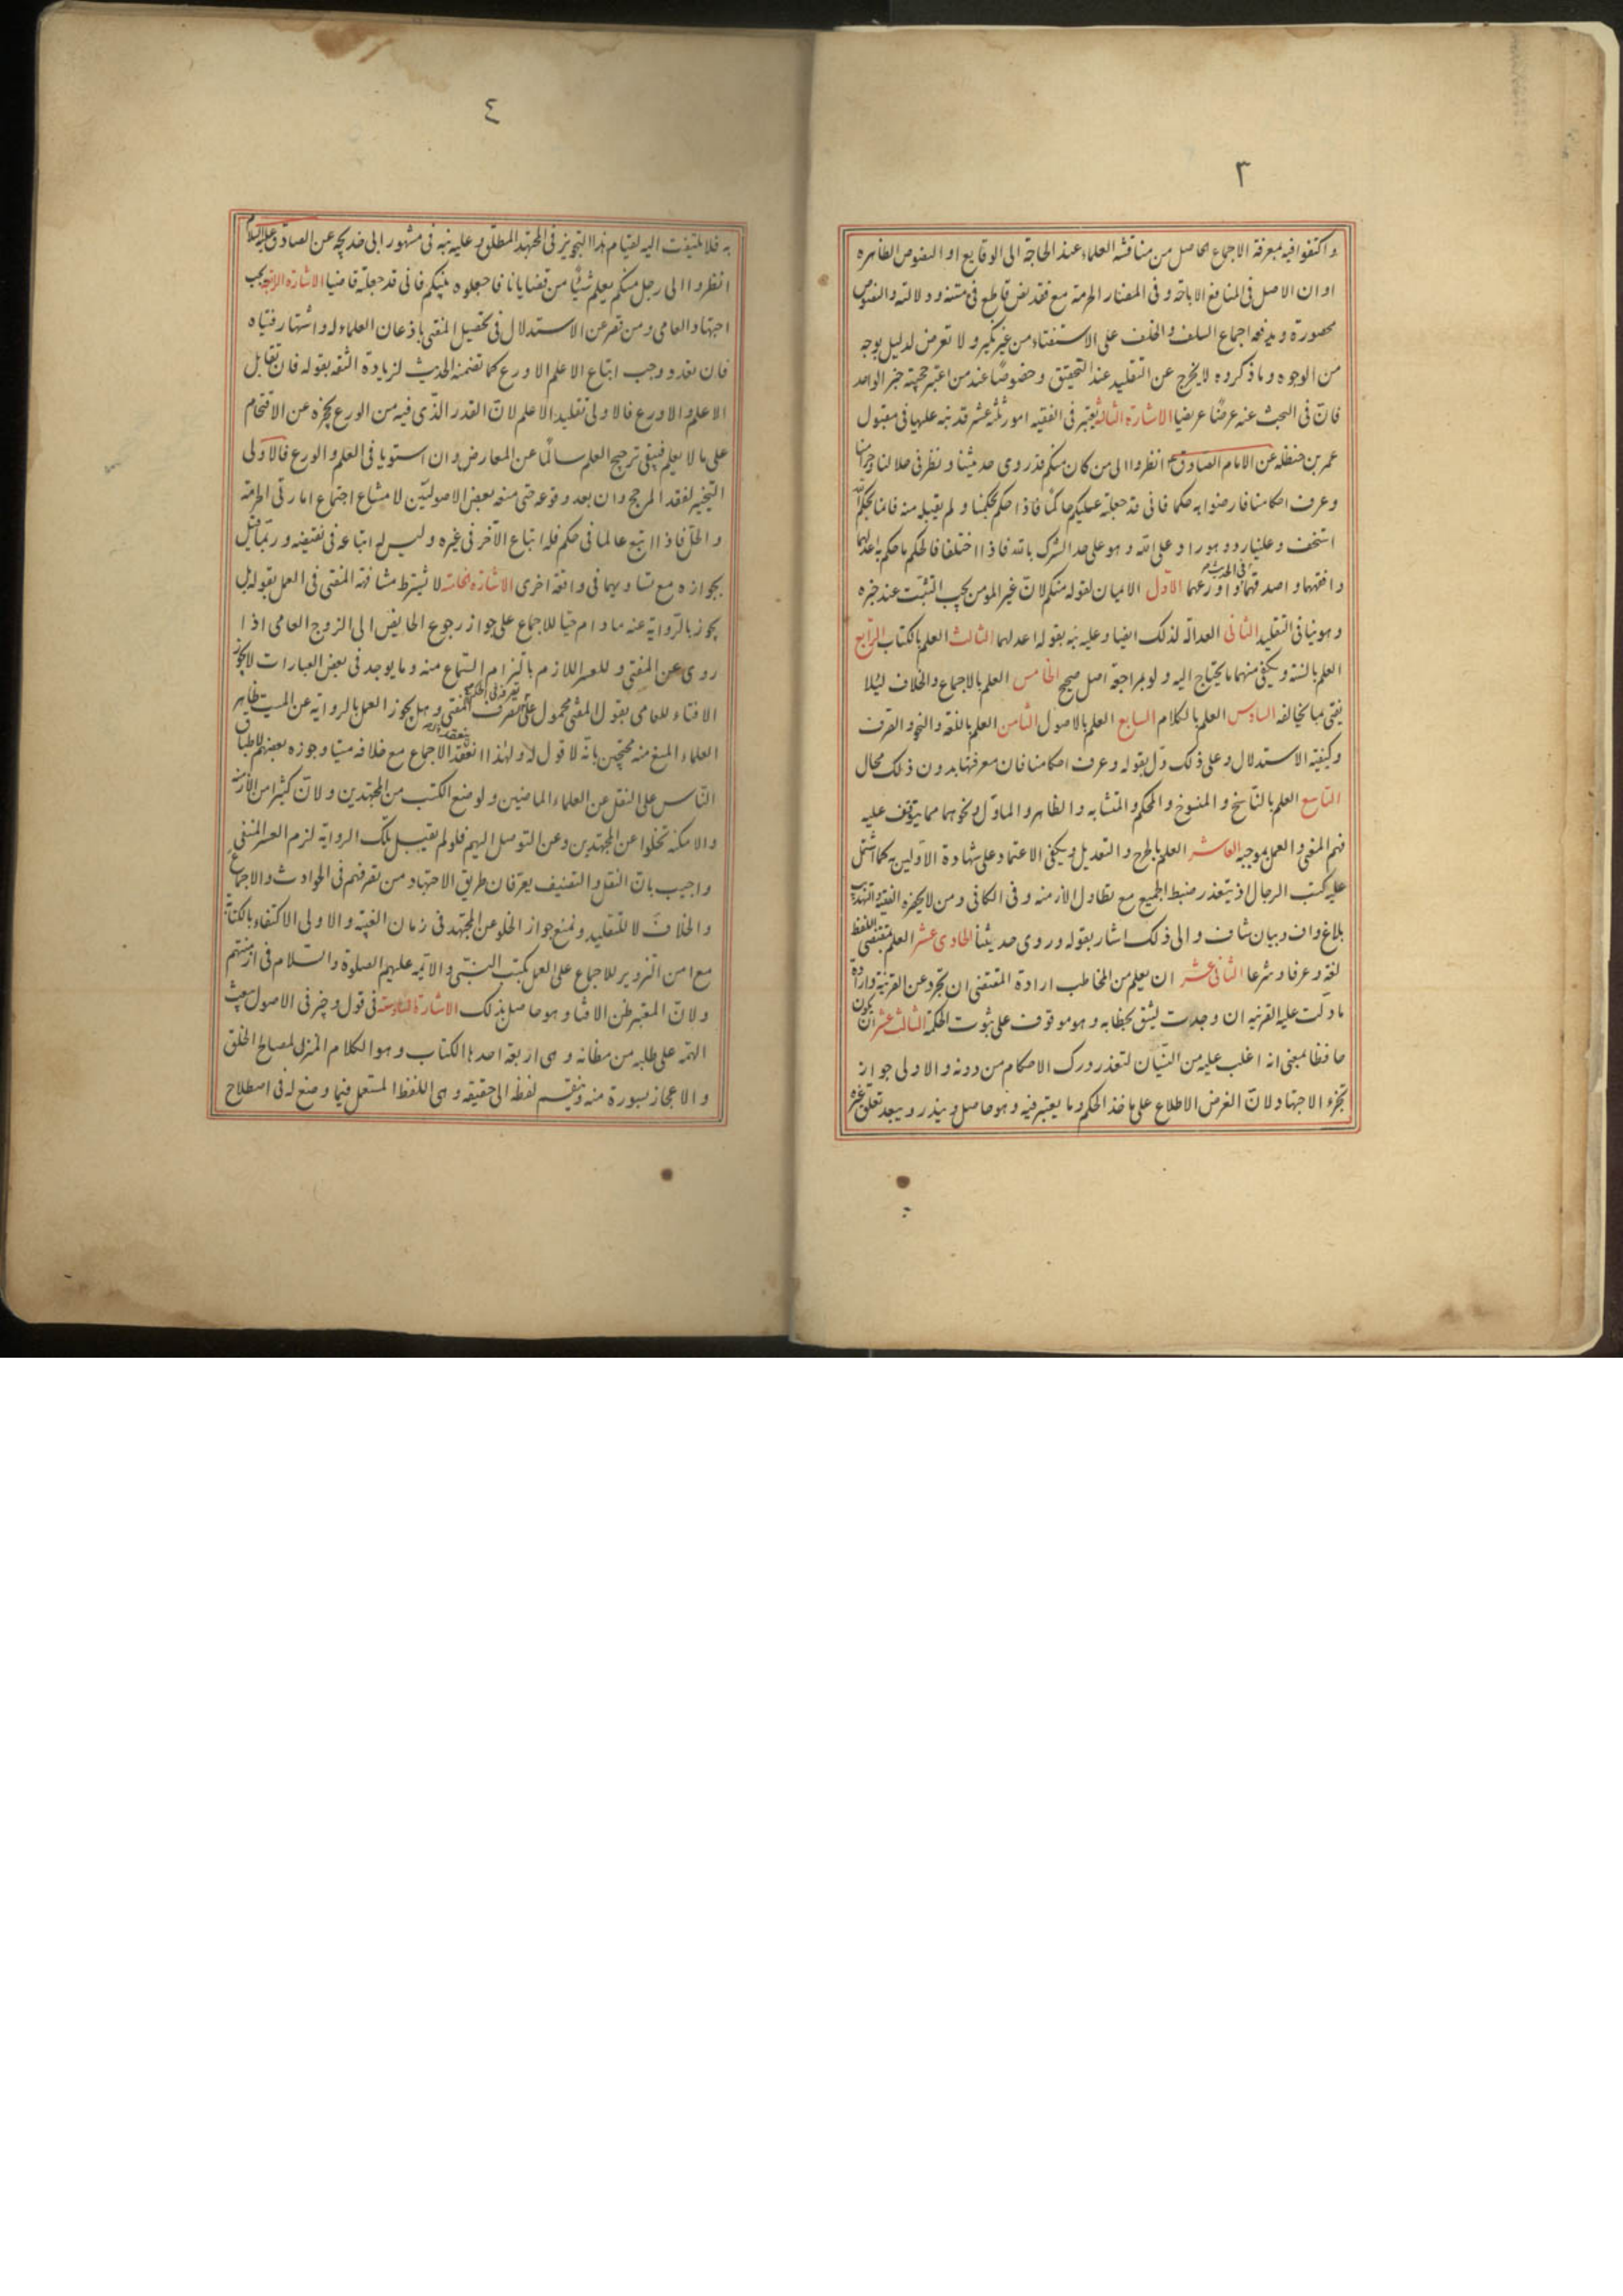 ٣
واكتفوا فيه بمعرفة الاجماع الحاصل من مناقشة العلماء عند الحاجة الى الوقايع او النصوص الظاهره
او ان الاصل فى المنافع الاباحة و فى المضار الحرمة مع فقد نص قاطع فى متنه و دلالته والنصوص
محصورة و يدفعه اجماع السلف والخلف على الاستفتاء من غير نكير و لا تعرض لدليل بوجه
من الوجوه و ما ذكروه لا يخرج عن التقليد عند التحقيق و خصوصًا عند من اعتبر حجية خبر الواحد
فانّ فى البحث عنه عرضًا عريضا الاشارة الثالثة يعتبر فى الفقيه امور ثلثة عشر قد نبه عليها فى مقبول
عمر بن حنظله عن الامام الصادق ع انظروا الى من كان منكم قد روى حديثنا و نظر فى حلالنا وحرامنا
وعرف احكامنا فارضوا به حكما فانى قد جعلته عليكم حاكمًا فاذا حكم بحكمنا و لم يقبله منه فانما بحكم الله
استخف و علينا رد و هو راد على الله و هو على حد الشرك بالله فاذا اختلفا فالحكم ما حكم به اعدلهما
وافقههما و اصدقهما فى الحديث و اورعهما الاوّل الايمان لقوله منكم لانّ غير المومن يجب التثبّت عند خبره
و هو ينافى التقليد الثانى العدالة لذلك ايضا و عليه نبه بقوله اعدلهما الثالث العلم بالكتاب الرّابع
العلم بالسنة و يكفى منهما ما يحتاج اليه و لو بمراجعة اصل صحيح الخامس العلم بالاجماع والخلاف لئلا
يفتى بما يخالفه السادس العلم بالكلام السابع العلم بالاصول الثامن العلم باللغة والنحو و الصرف
وكيفية الاستدلال و على ذلك دلّ بقوله و عرف احكامنا فان معرفتها بدون ذلك محال
التاسع العلم بالنّاسخ و المنسوخ و المحكم و المتشابه و الظاهر و الماوّل و نحوهما مما يتوقف عليه
فهم المعنى و العمل بموجبه العاشر العلم بالجرح و التعديل و يكفى الاعتماد على شهادة الاوّلين به كما اشتمل
عليه كتب الرجال اذ يتعذر ضبط الجميع مع تطاول الازمنه و فى الكافى و من لا يحضره الفقيه و التهذيب
بلاغ واف و بيان شاف و الى ذلك اشار بقوله و روى حديثنا الحادى عشر العلم بمقتضى اللفظ
لغة و عرفا و شرعا الثانى عشر ان يعلم من المخاطب ارادة المقتضى ان تجرّد عن القرينة و ارادة
ما دلت عليه القرينه ان وجدت ليثق بخطابه و هو موقوف على ثبوت الحكمة الثالث عشر ان يكون
حافظا بمعنى انه اغلب عليه من النّسيان لتعذر درك الاحكام من دونه و الاولى جواز
تجزء الاجتهاد لانّ الغرض الاطلاع على ماخذ الحكم و ما يعتبر فيه و هو حاصل و يندر و يبعد تعلّق غيره
٤
به فلا يلتفت اليه لقيام هذا التجويز فى المجتهد المطلق و عليه نبه فى مشهور ابى خديجه عن الصادق عليه السلام
انظروا الى رجل منكم يعلم شيئًا من قضايانا فاجعلوه بينكم فانى قد جعلته قاضيا الاشارة الرابعة يجب
اجتهاد العامى و من قصر عن الاستدلال فى تحصيل المفتى باذعان العلماء له و اشتهار فتياه
فان تعدد وجب اتباع الاعلم الاورع كما تضمنه الحديث لزيادة الثقه بقوله فان تقابل
الاعلم و الاورع فالاولى تقليد الاعلم لانّ القدر الذّى فيه من الورع يحجزه عن الاقتحام
على ما لا يعلم فيبقى ترجيح العلم سالمًا عن المعارض و ان استويا فى العلم و الورع فالاولى
التخيير لفقد المرجح و ان بعد وقوعه حتى منعه بعض الاصوليّين لامتناع اجتماع امارتى الحرمة
و الحلّ فاذا اتبع عالما فى حكم فله اتباع الآخر فى غيره و ليس له اتباعه فى نقيضه و ربّما قيل
بجوازه مع تساويهما فى واقعة اخرى الاشارة الخامسة لا يشترط مشافهة المفتى فى العمل بقوله بل
يجوز بالرّواية عنه مادام حيًا للاجماع على جواز رجوع الحايض الى الزوج العامى اذا
روى عن المفتى و للعسر اللازم بالتزام السّماع منه و ما يوجد فى بعض العبارات لا يجوز
الافتاء للعامى بقول المفتى محمول على تصرف المفتى و هل يجوز العمل بالرواية عن الميت ظاهر
العلماء المنع منه محتجين بانّه لا قول له و لهذا انعقد الاجماع مع خلافه ميتا و جوزه بعضهم لاطباق
النّاس على النقل عن العلماء الماضين و لوضع الكتب من المجتهدين و لانّ كثيرا من الازمنة
والامكنه تخلوا عن المجتهدين و عن التوصل اليهم فلو لم يقبل تلك الرواية لزم العسر المنفى
و اجيب بانّ النقل و التصنيف يعرّفان طريق الاجتهاد من تصرفهم فى الحوادث و الاجماع
و الخلاف لا للتقليد و نمنع جواز الخلو عن المجتهد فى زمان الغيبة و الاولى الاكتفاء بالكتابة
مع امن التزوير للاجماع على العمل بكتب النبىّ و الائمه عليهم الصلوة و السلام فى ازمنتهم
و لانّ المعتبر ظن الافتاء و هو حاصل بذلك الاشارة السّادسة فى قول وجيز فى الاصول يبعث
الهمّة على طلبه من مظانه و هى اربعة احدها الكتاب و هو الكلام المنزل لمصالح الخلق
و الاعجاز بسورة منه و ينقسم لفظه الى حقيقه و هى اللفظ المستعمل فيما وضع له فى اصطلاح